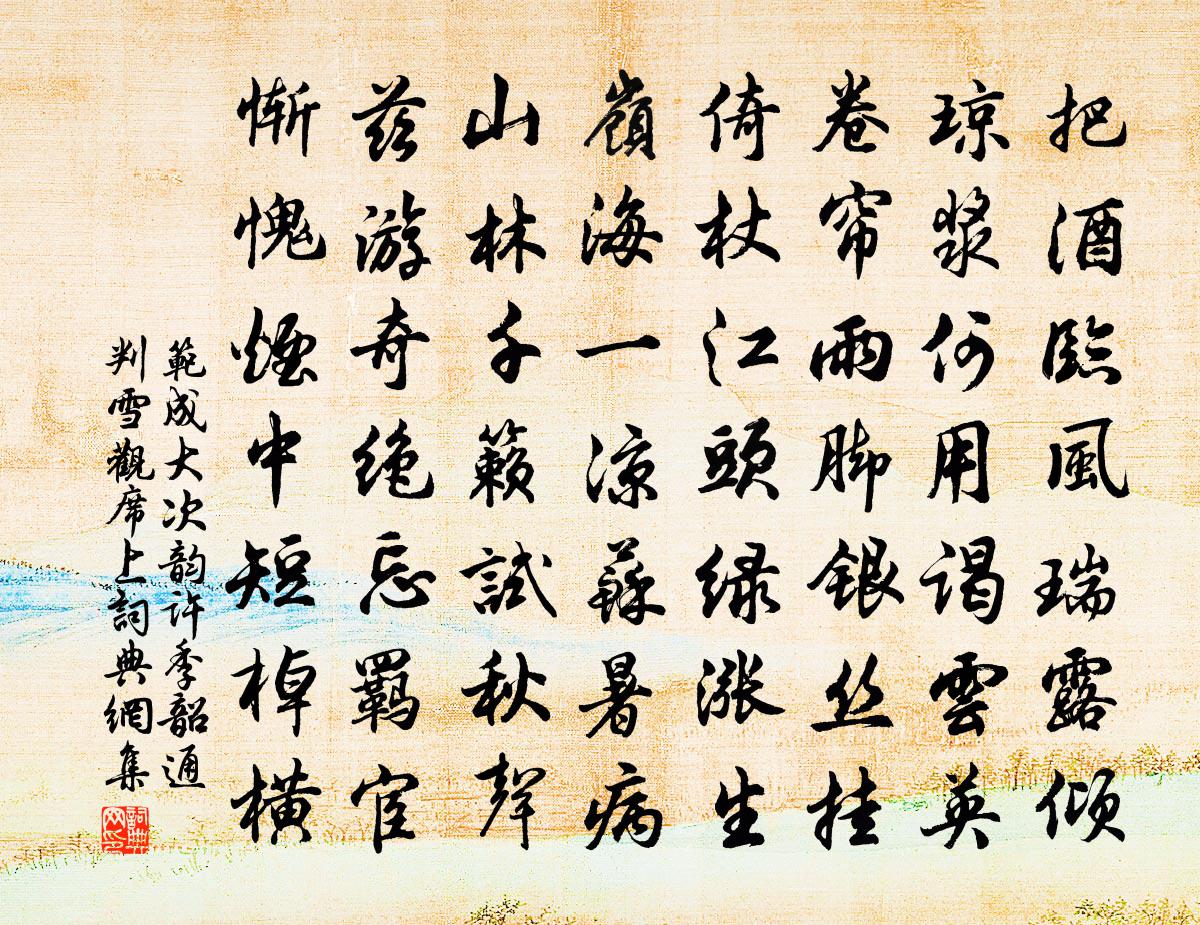 把酒臨風瑞露傾
琼漿何用謁雲英
卷帘雨脚銀丝挂
倚杖江頭绿漲生
嶺海一涼蘇暑病
山林千籟試秋聲
兹游奇绝忘羈宦
惭愧煙中短棹横
範成大次韵許季韶通
判雪觀席上詞典網集